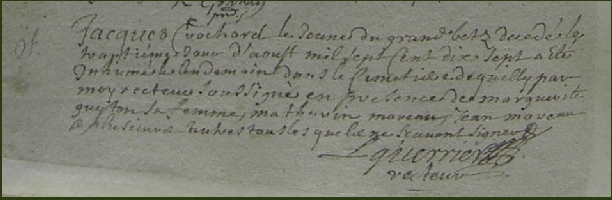 Jacques Crochard le Jeune du grand betz decedé le
vingtiéme Jour d'aoust mil sept Cent dix sept a été
Inhumé le lendemain dans le Cimetiere de quilly par
moy recteur Soussigné en presence de marguerite
guiton sa femme, mathurin moreau, Jean moreau
& plusieurs autres tous lesquels ne scavent signer
guerrier
recteur